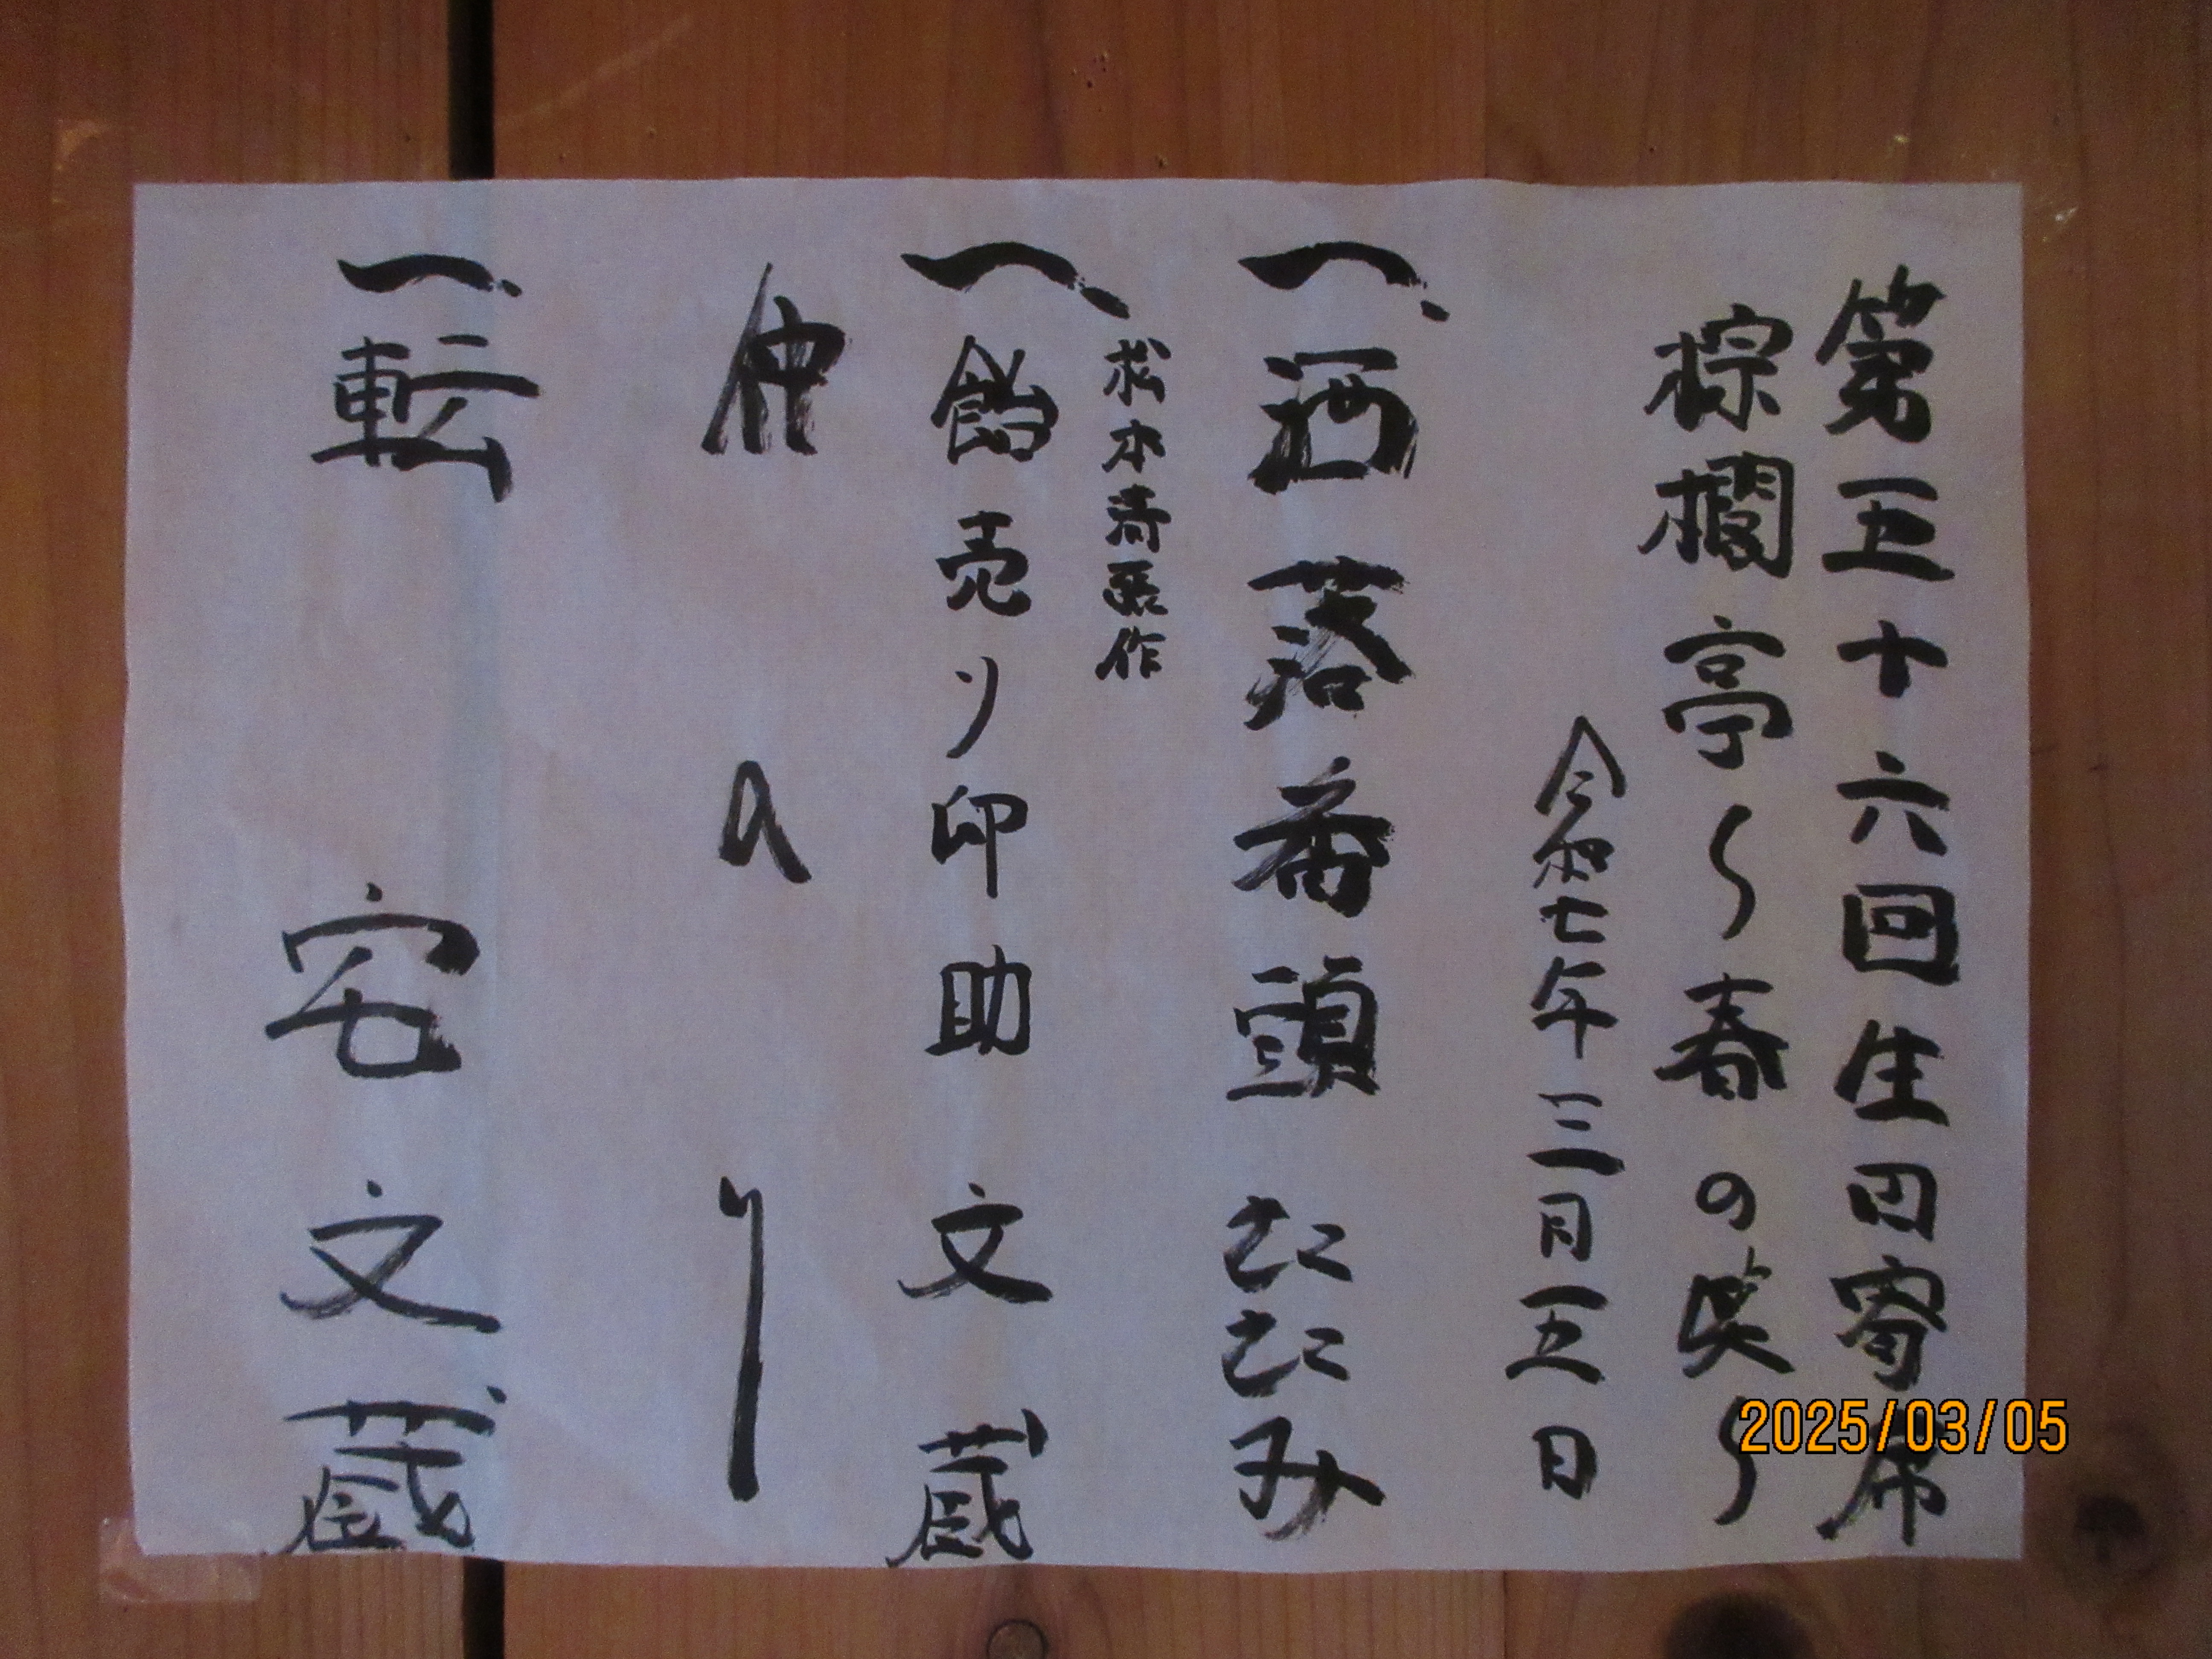 第五十六回生田寄席
棕櫚亭〜春の笑〜
令和七年三月五日
一、洒落番頭 たたみ
松本清張作
一、飴売り卯助 文蔵
仲入り
一、転宅 文蔵
2025/03/05